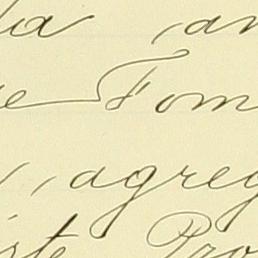 la , an
e Tom
, agreg
iste Pro